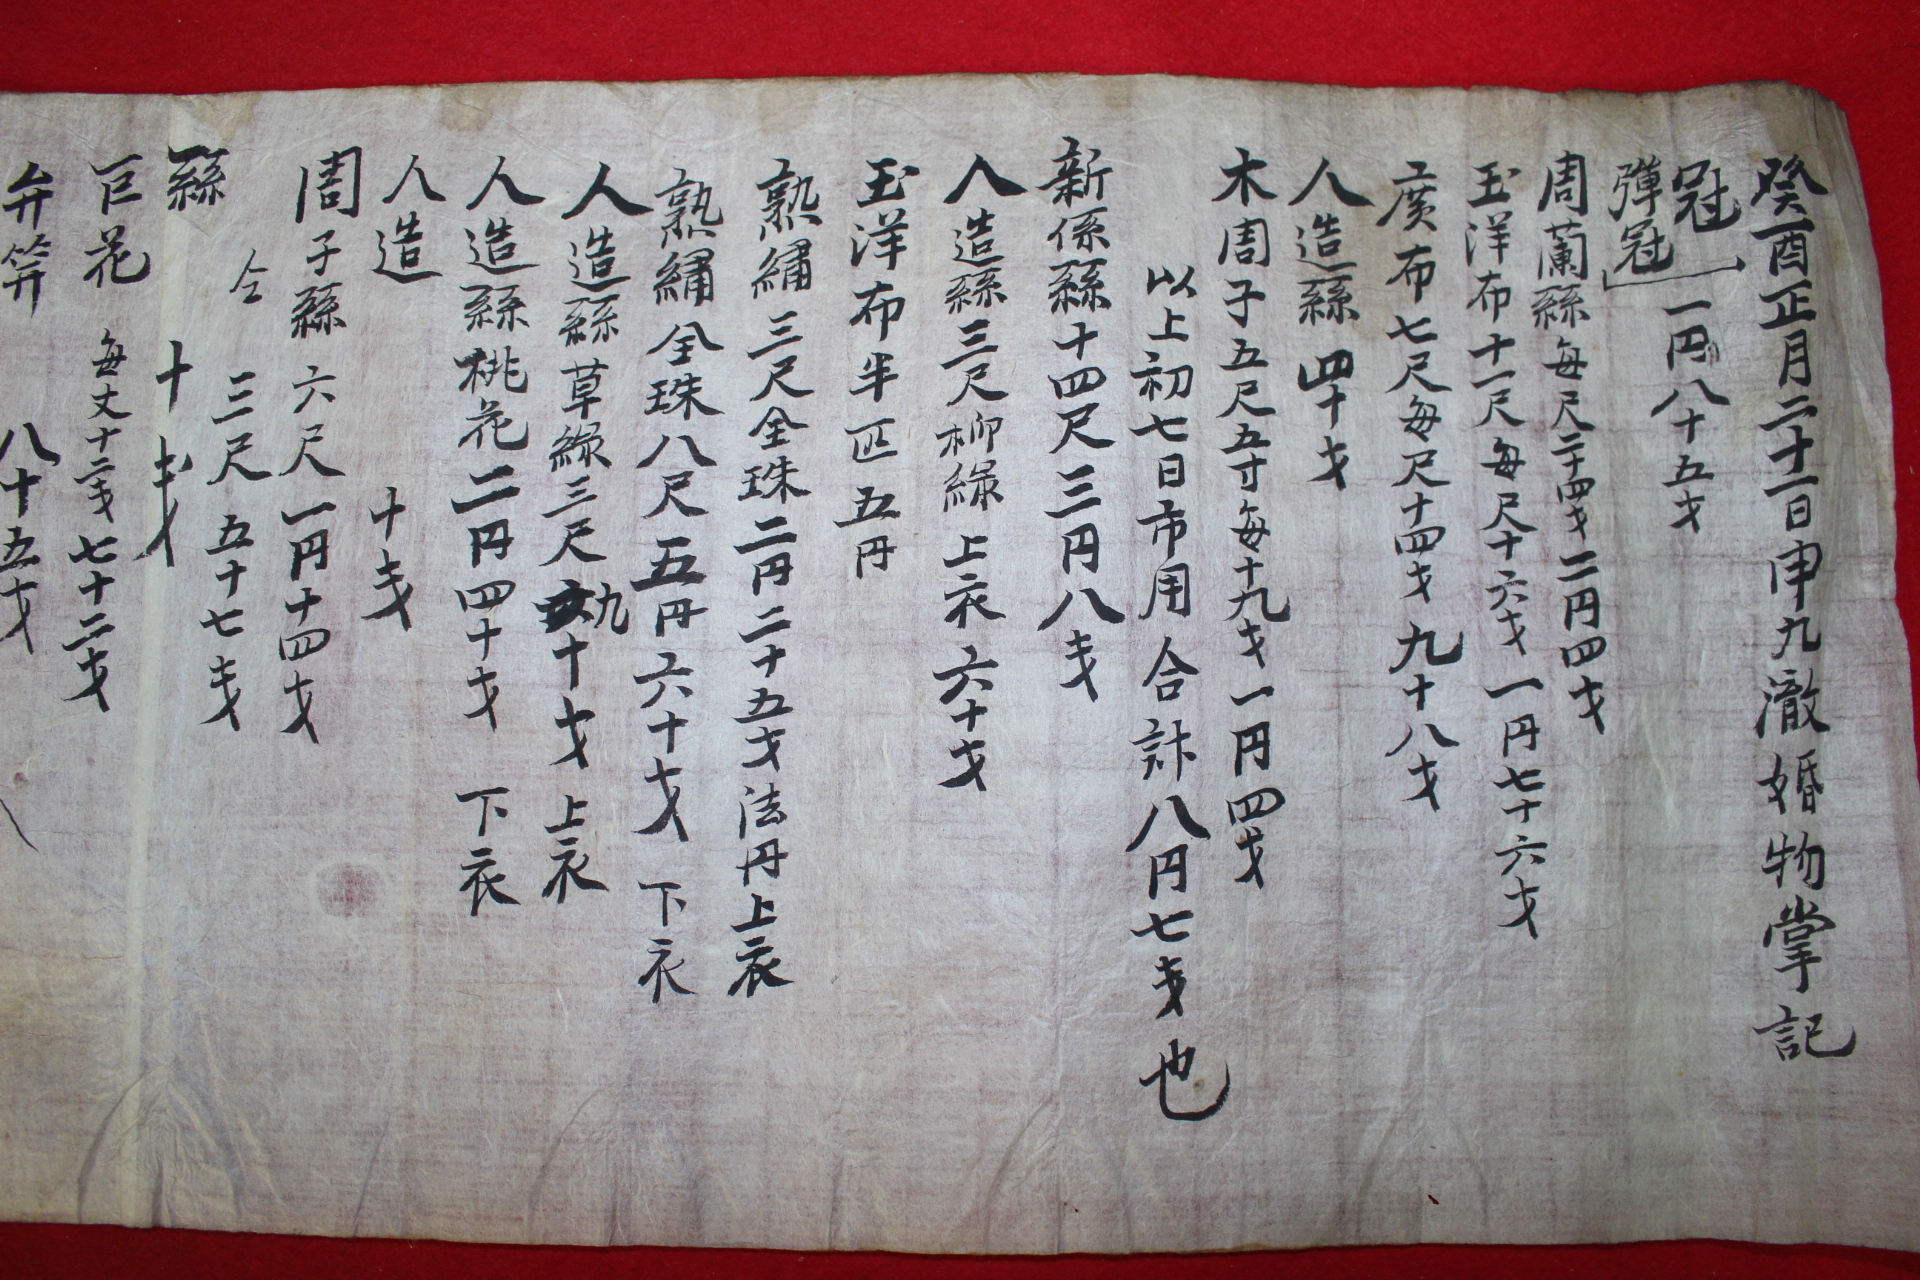 癸酉正月二十一日申九澈婚物掌記
冠 一円八十五戋
彈冠
周蘭絲每尺二十四戋二円四戋
玉洋布十一尺每尺十六戋一円七十六戋
廣布七尺每尺十四戋九十八戋
人造絲四十戋
木周子五尺五寸每十九戋一円四戋
以上初七日市用合計八円七戋也
新係絲十四尺三円八戋
人造絲三尺柳綠上衣六十戋
玉洋布半匹五円
熟繡三尺全珠二円二十五戋法円上衣
熟繡全珠八尺五円六十戋下衣
人造絲草綠三尺九十戋上衣
人造絲桃花二円四十戋下衣
人造 十戋
周子絲六尺一円十四戋
仝 三尺五十七戋
絲 十戋
巨花 每丈十二戋七十二戋
弁笄 八十五戋